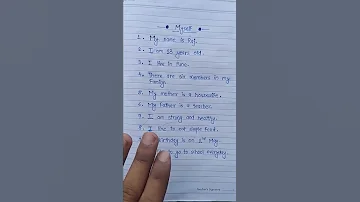 Myself
1. My name is Raj.
2. I am 13 years old.
3. I live in Pune.
4. There are six members in my
Family.
5. My mother is a housewife.
6. My father is a teacher.
7. I am strong and healthy.
8. I like to eat simple food.
birthday is on 2nd May.
to go to school everyday.